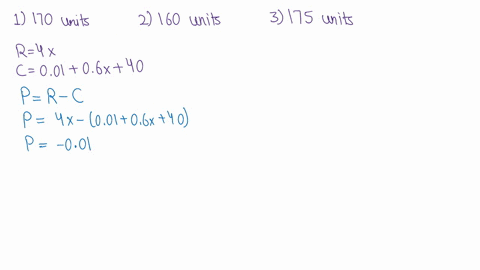 1) 170 units 2) 160 units 3) 175 units
R=4x
C=0.01+0.6x+40
P=R-C
P= 4x-(0.01+0.6x+40)
P= -0.01